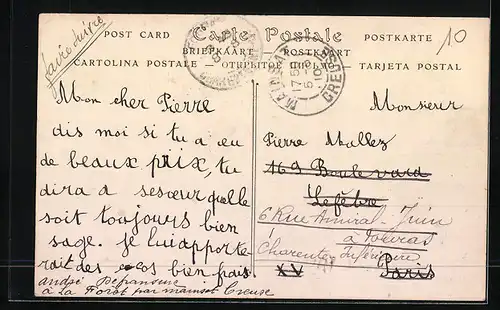 faire suivre
POST CARD
Carte Postale
POSTKARTE
BRIEFKAART — POSTKART
CARTOLINA POSTALE — ОТКРЫТОЕ
TARJETA POSTAL
10
MAINSAT
CREUSE
Mon cher Pierre
dis moi si tu a eu
de beaux prix, tu
dira a sesœur quelle
soit toujours bien
sage. je lui apporte
rait des cocos bien frais
andré
a La Foret par mainsat Creuse
Monsieur
Pierre Mallez
169 Boulevard
Lefèbre
6 Rue Amiral-Juin
à
Charente Inférieure
XV Paris